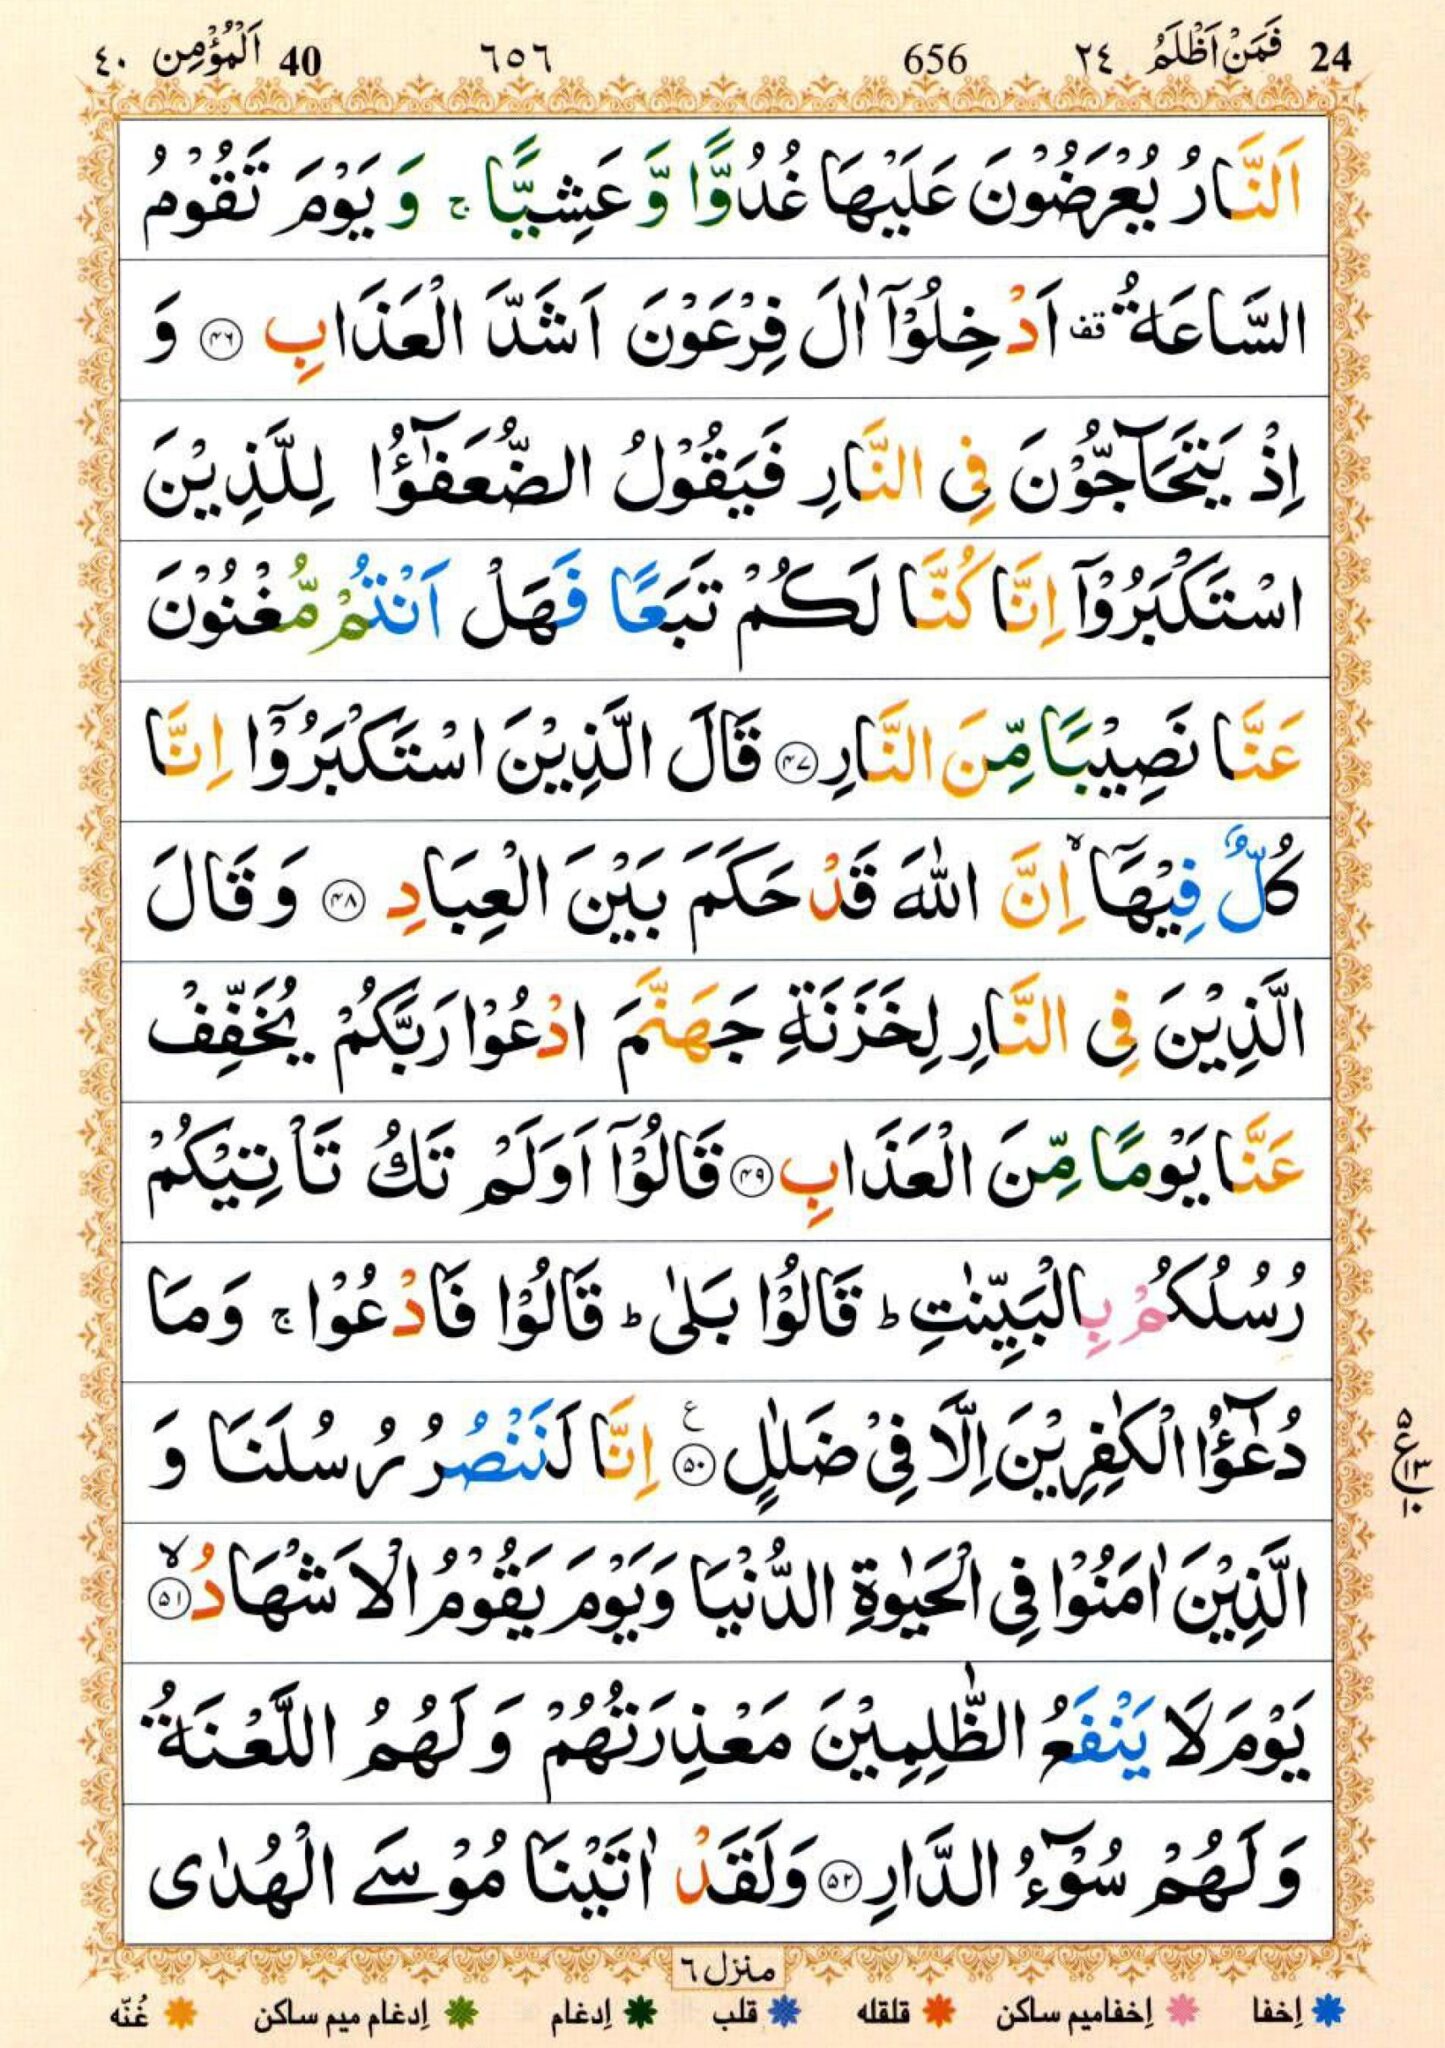 24 فَمَنْ اَظْلَمُ ٢٤ 656 ٦٥٦ 40 اَلْمُؤْمِن ٤٠
اَلنَّارُ يُعْرَضُوْنَ عَلَيْهَا غُدُوًّا وَّ عَشِيًّا ۚ وَ يَوْمَ تَقُوْمُ
السَّاعَةُ ۛقف اَدْخِلُوْۤا اٰلَ فِرْعَوْنَ اَشَدَّ الْعَذَابِ ۝۴۶ وَ
اِذْ يَتَحَآجُّوْنَ فِي النَّارِ فَيَقُوْلُ الضُّعَفٰٓؤُا لِلَّذِيْنَ
اسْتَكْبَرُوْۤا اِنَّا كُنَّا لَكُمْ تَبَعًا فَهَلْ اَنْتُمْ مُّغْنُوْنَ
عَنَّا نَصِيْبًا مِّنَ النَّارِ ۝۴۷ قَالَ الَّذِيْنَ اسْتَكْبَرُوْۤا اِنَّا
كُلٌّ فِيْهَاۤ ۙ اِنَّ اللّٰهَ قَدْ حَكَمَ بَيْنَ الْعِبَادِ ۝۴۸ وَ قَالَ
الَّذِيْنَ فِي النَّارِ لِخَزَنَةِ جَهَنَّمَ ادْعُوْا رَبَّكُمْ يُخَفِّفْ
عَنَّا يَوْمًا مِّنَ الْعَذَابِ ۝۴۹ قَالُوْۤا اَوَ لَمْ تَكُ تَاْتِيْكُمْ
رُسُلُكُمْ بِالْبَيِّنٰتِ ؕ قَالُوْا بَلٰى ؕ قَالُوْا فَادْعُوْا ۚ وَ مَا
دُعٰٓؤُا الْكٰفِرِيْنَ اِلَّا فِيْ ضَلٰلٍ ۝۵۰ ع اِنَّا لَنَنْصُرُ رُسُلَنَا وَ
الَّذِيْنَ اٰمَنُوْا فِي الْحَيٰوةِ الدُّنْيَا وَ يَوْمَ يَقُوْمُ الْاَشْهَادُ ۙ۝۵۱
يَوْمَ لَا يَنْفَعُ الظّٰلِمِيْنَ مَعْذِرَتُهُمْ وَ لَهُمُ اللَّعْنَةُ
وَ لَهُمْ سُوْٓءُ الدَّارِ ۝۵۲ وَ لَقَدْ اٰتَيْنَا مُوْسَى الْهُدٰى
۵
ع
۱۳
۱۰
منزل ٦
اِخفا اِخفامیم ساکن قلقله قلب اِدغام اِدغام میم ساکن غُنّه